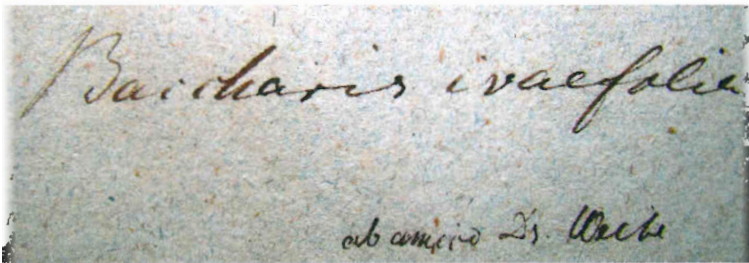 Baccharis ivaefolia
ab amico Dr.